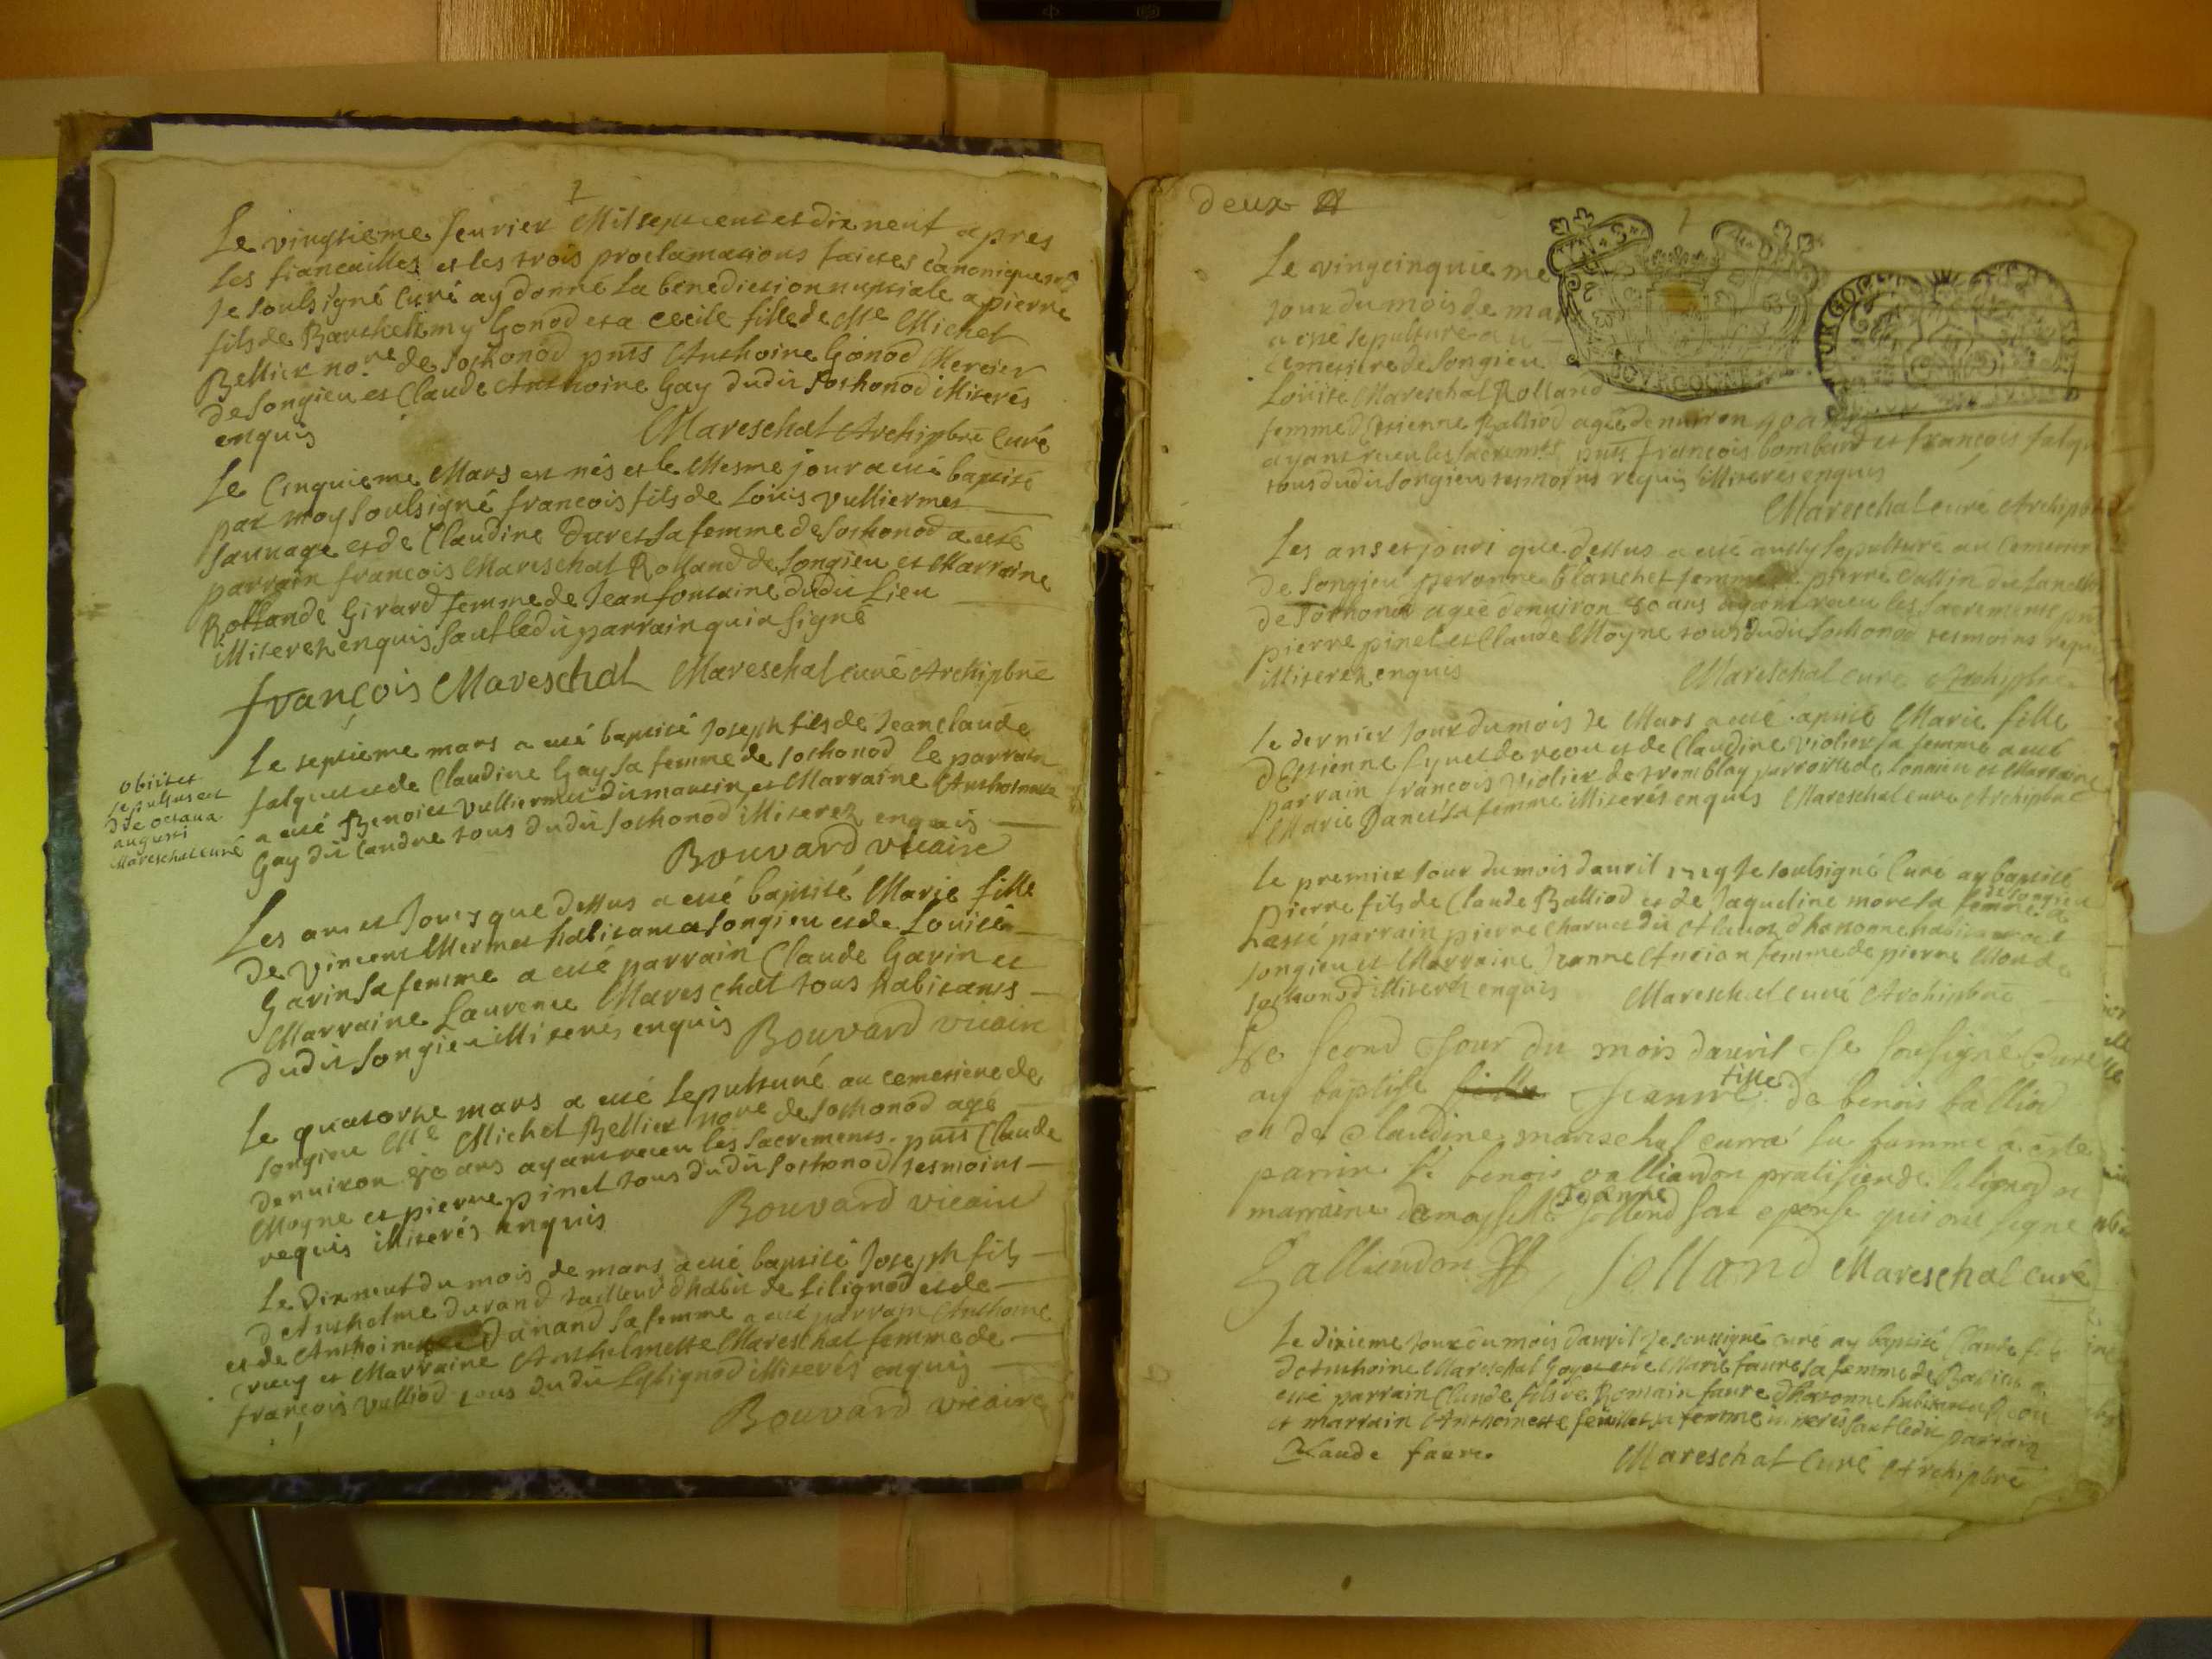 Le vingtieme feurier Mil sept cent et dix neuf apres
les fiancailles et les trois proclamations faictes canoniquem.t
Je soulsigné Curé ay donné la benediction nuptiale a pierre
fils de Barthelemy Gonod et a Cecile fille de Me Michel
Bellier no.re de Sothonod pnts Anthoine Gonod Mercier
de Songieu et Claude Anthoine Gay dudit Sothonod illiterés
enquis
Mareschal Archipbre Curé
Le Cinquieme Mars est nés et le Mesme jour a esté baptisé
par moy soulsigné francois fils de Loüis Vulliermet
sauuage et de Claudine Duret sa femme de Sothonod a esté
parrain francois Mareschal Rolland de Songieu et Marraine
Rollande Girard femme de Jean fontaine dudit Lieu
illiterez enquis sauf ledit parrain qui a signé
françois Mareschal Mareschal curé Archipbre
Le septieme mars a esté baptisé Joseph fils de Jean claude
falquet et de Claudine Gay sa femme de Sothonod le parrain
a esté Benoict Vulliermet dit martin et Marraine Anthoinette
Gay dit landre tous dudit Sothonod illiterez enquis
Bouvard vicaire
obiit et
sepultus est
die octaua
augusti
Mareschal curé
Les an et Jour que dessus a esté baptisé Marie fille
de Vincent Mermet habitant a Songieu et de Louise
Garin sa femme a esté parrain Claude Garin et
Marraine Laurence Mareschal tous habitants
dudit Songieu illiterés enquis Bouvard vicaire
Le quatorze mars a esté sepulturé au cemetiere de
Songieu Me Michel Bellier no.re de Sothonod agé
denuiron 80 ans ayant receu les sacrements. pnts Claude
Moyne et pierre pinet tous dudit Sothonod tesmoins
requis illiterés enquis Bouvard vicaire
Le dix neuf du mois de mars a esté baptisé Joseph fils
dAnthelme durand tailleur dhabit de Lilignod et de
et de Anthoinette Dunand sa femme a esté parrain Anthoine
et Marraine Anthelmette Mareschal femme de
françois Vulliod tous dudit Lilignod illiterés enquis
Bouvard vicaire
deux
Le vingcinquieme
Jour du mois de mar
a esté sepulturé au
cemetiere de Songieu
Loüise Mareschal Rolland
femme dEstienne Balliod agée denuiron 90 ans
ayant receu les sacremts pnts françois bombard et françois falqu
tous dudit Songieu tesmoins requis illiterés enquis
Mareschal curé Archipb
BOVRGOGNE
Les an et jour que dessus a esté aussy sepulturé au Cemetier
de Songieu peronne blanchet femme de pierre
de Sothonod agée denuiron 80 ans ayant receu les sacrements pnt
pierre pinet et Claude Moyne tous dudit Sothonod tesmoins requi
illiterez enquis
Mareschal curé Archipbre
Le dernier Jour du mois de Mars a esté baptisé Marie fille
dEstienne de recou et de Claudine Violier sa femme a esté
parrain francois Violier de tremblay parroisse de et Marraine
Marie Danet sa femme illiterés enquis Mareschal curé Archipbre
Le premier Jour du mois dauril 1719 Je soulsigné Curé ay baptisé
Pierre fils de Claude Balliod et de Jaqueline moret sa femme de Songieu
a esté parrain pierre Charuet dit dhotonne habitant
Songieu et Marraine Jeanne Ancian femme de pierre Mon de
Sothonod illiterez enquis Mareschal curé Archipbre
Le second Jour du mois dauril Je sousigné Curé
ay baptisé Jeanne fille de benoit balliod
et de Claudine mareschal curra sa femme a esté
parrin Sr benoit galliandon pratisien de lilignod et
marraine damoyselle Jeanne Jolland son epouse qui ont signé
Galliandon Jolland Mareschal curé
Le dixieme Jour du mois dauril Je soussigné curé ay baptisé Claude fils
dAnthoine Mareschal Goyet et de Marie faure sa femme de a
esté parrain Claude fils de Romain faure dhotonne habitant a Recou
et marrain Anthoinette feuillet sa femme illiterés sauf ledit parrain
Claude faure
Mareschal Curé Archipbre